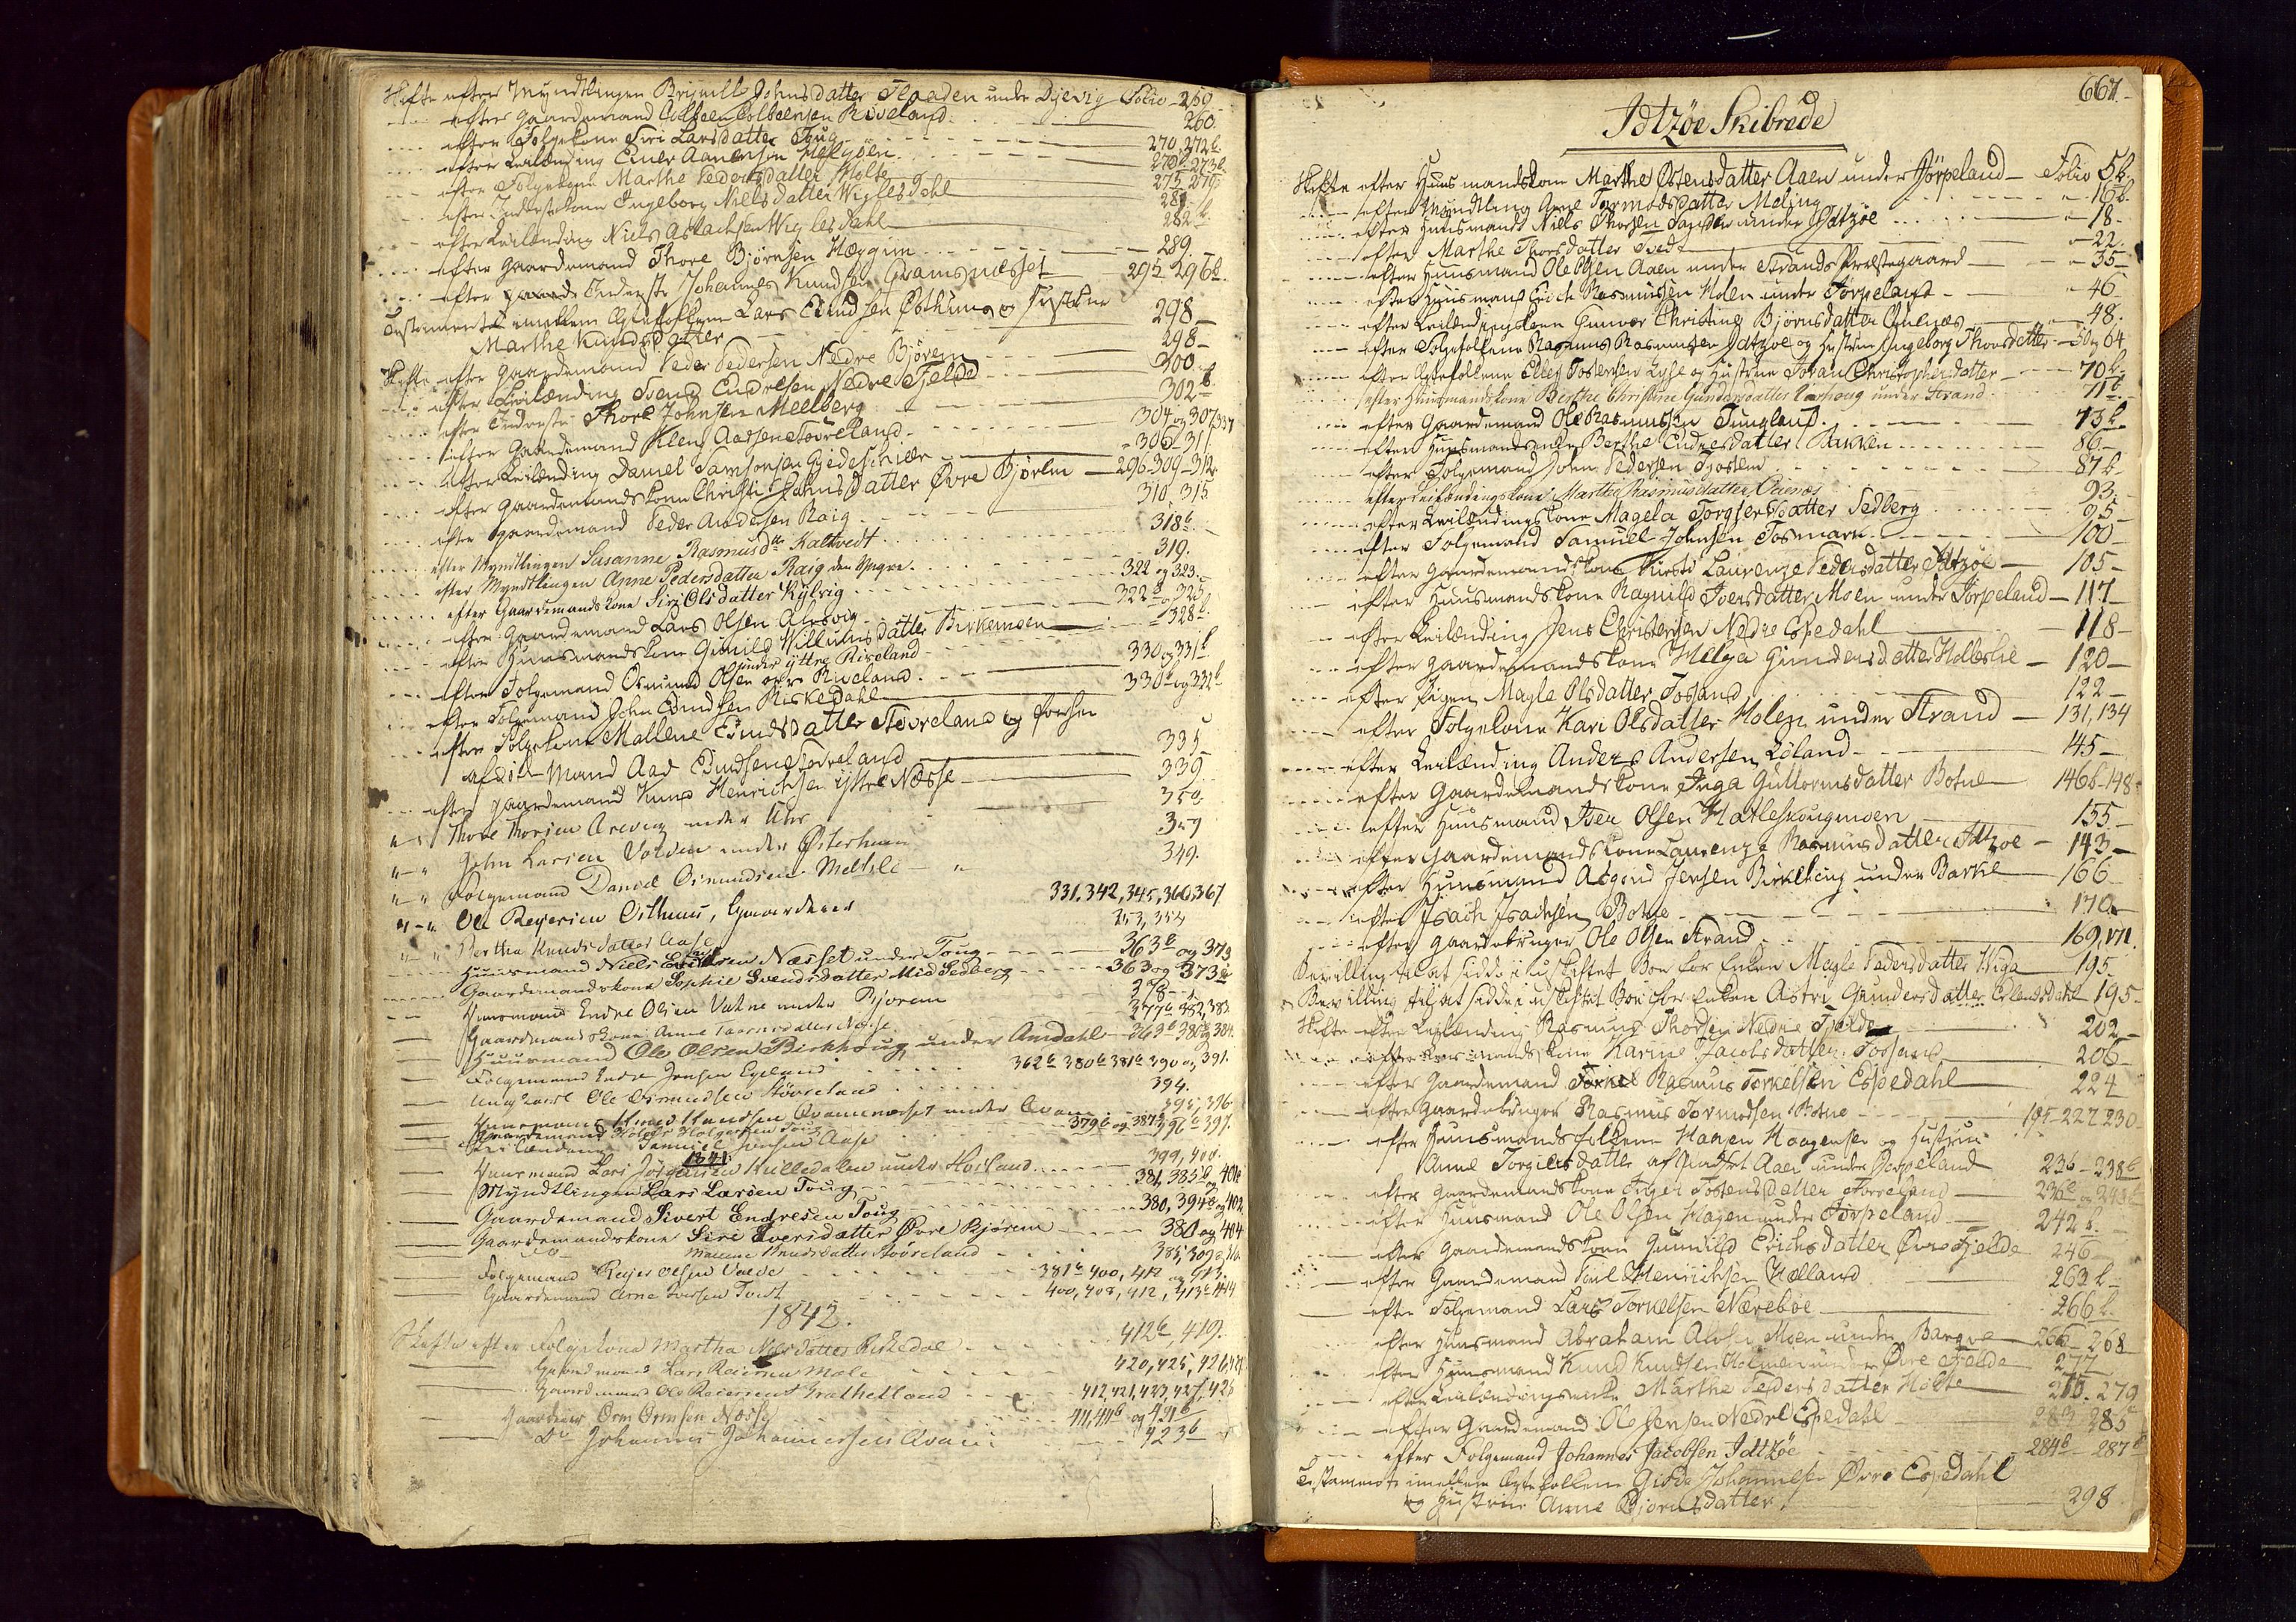 Skifte efter Myndtlingen Brynild Johnsdatter Floeden under Dysvig Folio 259
efter Gaardemand Colbeen Colbeensen Riveland 260
efter Folgekone Siri Larsdatter Toug 270, 272b
efter Leilænding Einer Aanensen Helgøen 270b 273b
efter Folgekone Marthe Pedersdatter Holte 275 279
efter Inderstekone Ingeborg Nielsdatter Wiglesdahl 281
efter Leilænding Niels Aslachsen Wiglesdahl 282b
efter Gaardemand Thore Bjørnsen Hæggim 289
efter Inderste Johannes Knudsen Qvamsnæsset 295 296b
Testamente imellem Ægtefolkene Lars Eendsen Østhuus og Hustrue
Marthe Knudsdatter 298
Skifte efter Gaardemand Peder Pedersen Nedre Bjørem 298
efter Leilænding Svend Endresen Nedre Fjelde 300
efter Inderste Thore Johnsen Meelberg 302b
efter Gaardemand Klens Aadsen Tøvreland 304 og 307, 337
efter Leilænding Daniel Samsonsen Gjedeschier 306 311
efter Gaardemandskone Christi Johnsdatter Øvre Bjørem 296 309 312
efter Gaardemand Peder Andersen Raig 310, 315
efter Myndtlingen Susanne Rasmusdtr Kaltvedt 318b
efter Myndtlingen Anne Pedersdatter Raig den Yngre 319
efter Gaardemandskone Siri Olsdatter Kylvig 322 og 323
efter Gaardemand Lars Olsen Alrsvig 322b og 325
efter Huusmandskone Gunild Willumsdatter Birkemoen 328b
under yttre Riveland
efter Folgemand Osmund Olsen øvre Riveland 330 og 331b
efter Folgemand John Eendsen Riskedahl 330b og 332b
efter Folgekone Mallene Eendsdatter Støvreland og forhen
afdøde Mand Aad Eendsen Støvreland 335
efter Gaardemand Knud Henrichsen yttre Næsse 339
Thore Thorsen Arevig under 350
John Larsen Volden under Østerhuus 359
Folgemand Daniel Osmundsen Melhle 349
Ole Reiersen Østhuus, Gaardbruger 331, 342, 345, 360, 367
Berthe Knudsdatter Aase 353, 354
Huusmand Niels Endresen Næsset under Toug 363b og 373
Gaardemandskone Sophie Svendsdatter Mid Sedberg 363 og 373b
Huusmand Endre Olsen Vatne under Bjørem 378
Gaardmandskone Anne Taarresdatter Næsse 377b 382, 383
Huusmand Ole Olsen Birkhoug under Amdahl 369b 380b 384
Folgemand Endre Jonsen Egeland 362b 380b 381b 390 og 391
Ungkarl Ole Osmundsen Støvreland 394
Huusmand Knud Knudsen Qvamsnæsset under Qvam 395, 396
Gaardemand Holger Holgersen Toug 379b og 387b 396b 397
Leilænding Daniel Jensen Aase
1841
Huusmand Lars Jørgensen Kulledalen under Høiland 399, 400
Myndtlingen Lars Larsen Toug 381, 385b og 401
Gaardemand Sivert Endresen Toug 380, 394b og 402
Gaardemandskone Siri Iversdatter Øvre Bjørem 380 og 404
do Malene Knudsdatter Støvreland 385, 309 og 310
Folgemand Reier Olsen Valde 381b 400, 412 og 413
Gaardemand Arne Iversen Tvedt 400, 408, 412, 413b 414
1842.
Skifte efter Folgekone Martha Nielsdatter Riskedal 412b, 419
Gaardmand Lars Reiersen Mæle 420, 425, 426, 428
Gaardmand Ole Reiersen Trathetland 412, 421, 423, 427, 428
Gaardbruger Orm Ormsen Næsse 411, 411b og 421b
do Johannes Johannessen Qvam 423b
667
Idtzøe Skibrede
Skifte efter Huusmandskone Marthe Ostensdatter Aaen under Jørpeland Folio 5b
efter Myndtling Arne Tormodsdatter Meling 16b
efter Huusmand Niels Thorsen Sanden under Idtzøe 18
efter Marthe Thorsdatter Tvedt 22
efter Huusmand Ole Olsen Aaen under Strands Præstegaard 35
efter Huusmand Erich Rasmussen Holen under Jørpeland 46
efter Leilændingskone Gunvor Christine Bjørnsdatter Qulnæs 48
efter Folgefolkene Rasmus Rasmussen Idtzøe og Hustrue Ingeborg Thorsdatter 50 og 64
efter Ægtefolkene Elling Tostensen Lyse og Hustrue Joran Christophersdatter 70b
efter Huusmandskone Berthe Christine Gundersdatter Varhoug under Strand 71b
efter Gaardemand Ole Rasmussen Tungland 73b
efter Huusmandsenke Berthe Endresdatter Bakken 86
efter Folgemand John Pedersen Fjosten 87b
efter Leilændingskone Marthe Rasmusdatter Oaenes 93
efter Leilændingskone Magela Torgersdatter Sedberg 95
efter Folgemand Samuel Johnsen Fosmark 100
efter Gaardemandskone Kirsti Laurenze Pedersdatter Idtzøe 105
efter Huusmandskone Ragnild Iversdatter Moen under Jørpeland 117
efter Leilænding Jens Christensen Nedre Espedahl 118
efter Gaardemandskone Helga Gundersdatter Holleslie 120
efter Pigen Magle Olsdatter Fossand 122
efter Folgekone Kari Olsdatter Holen under Strand 131, 134
efter Leilænding Anders Andersen Løland 145
efter Gaardemandskone Inga Guttormsdatter Botne 146b 148
efter Huusmand Iver Olsen Hatleskougmoen 155
efter Gaardemandskone Laurenze Rasmusdatter Idtzøe 143
efter Huusmand Asgoud Jensen Birkeling under Barke 166
efter Isach Isachsen Botne 170
efter Gaardebruger Ole Olsen Strand 169, 171
Bevilling til at sidde i uskiftet Boe for Enken Magle Pedersdatter Wiga 195
Bevilling til at sidde i uskiftet Boe for Enken Astri Gundersdatter Erlandsdahl 195
Skifte efter Leilænding Rasmus Thorsen Nedre Fjelde 202
efter Huusmandskone Karine Jacobsdatter Fossand 206
efter Gaardemand Rasmus Torkelsen Espedahl 224
efter Gaardebruger Rasmus Tormodsen Botne 195 227 230
efter Huusmandsfolkene Haagen Haagensen og Hustrue
Anne Torgiersdatter af Pladset Aaen under Jørpeland 236 238b
efter Gaardemandskone Inger Tostensdatter Jørreland 236b og 243b
efter Huusmand Ole Olsen Hagen under Jørpeland 242b
efter Gaardemandskone Gunnild Erichsdatter Øvre Fjelde 246
efter Gaardemand Poul Henrichsen Hølland 263b
efter Folgemand Lars Torkelsen Nærebøe 266b
efter Huusmand Abraham Moen under Barkve 266 268
efter Huusmand Knud Knudsen Holmen under Øvre Fjelde 277
efter Leilændingsenke Marthe Pedersdatter Holte 275 279
efter Gaardemand Ole Jensen Nedre Espedahl 283 285
efter Folgemand Johannes Jacobsen Idtzøe 284b 287b
Testamente imellem Ægtefolkene Gitle Johannessen Øvre Espedahl
og Hustrue Anne Bjørnsdatter 298